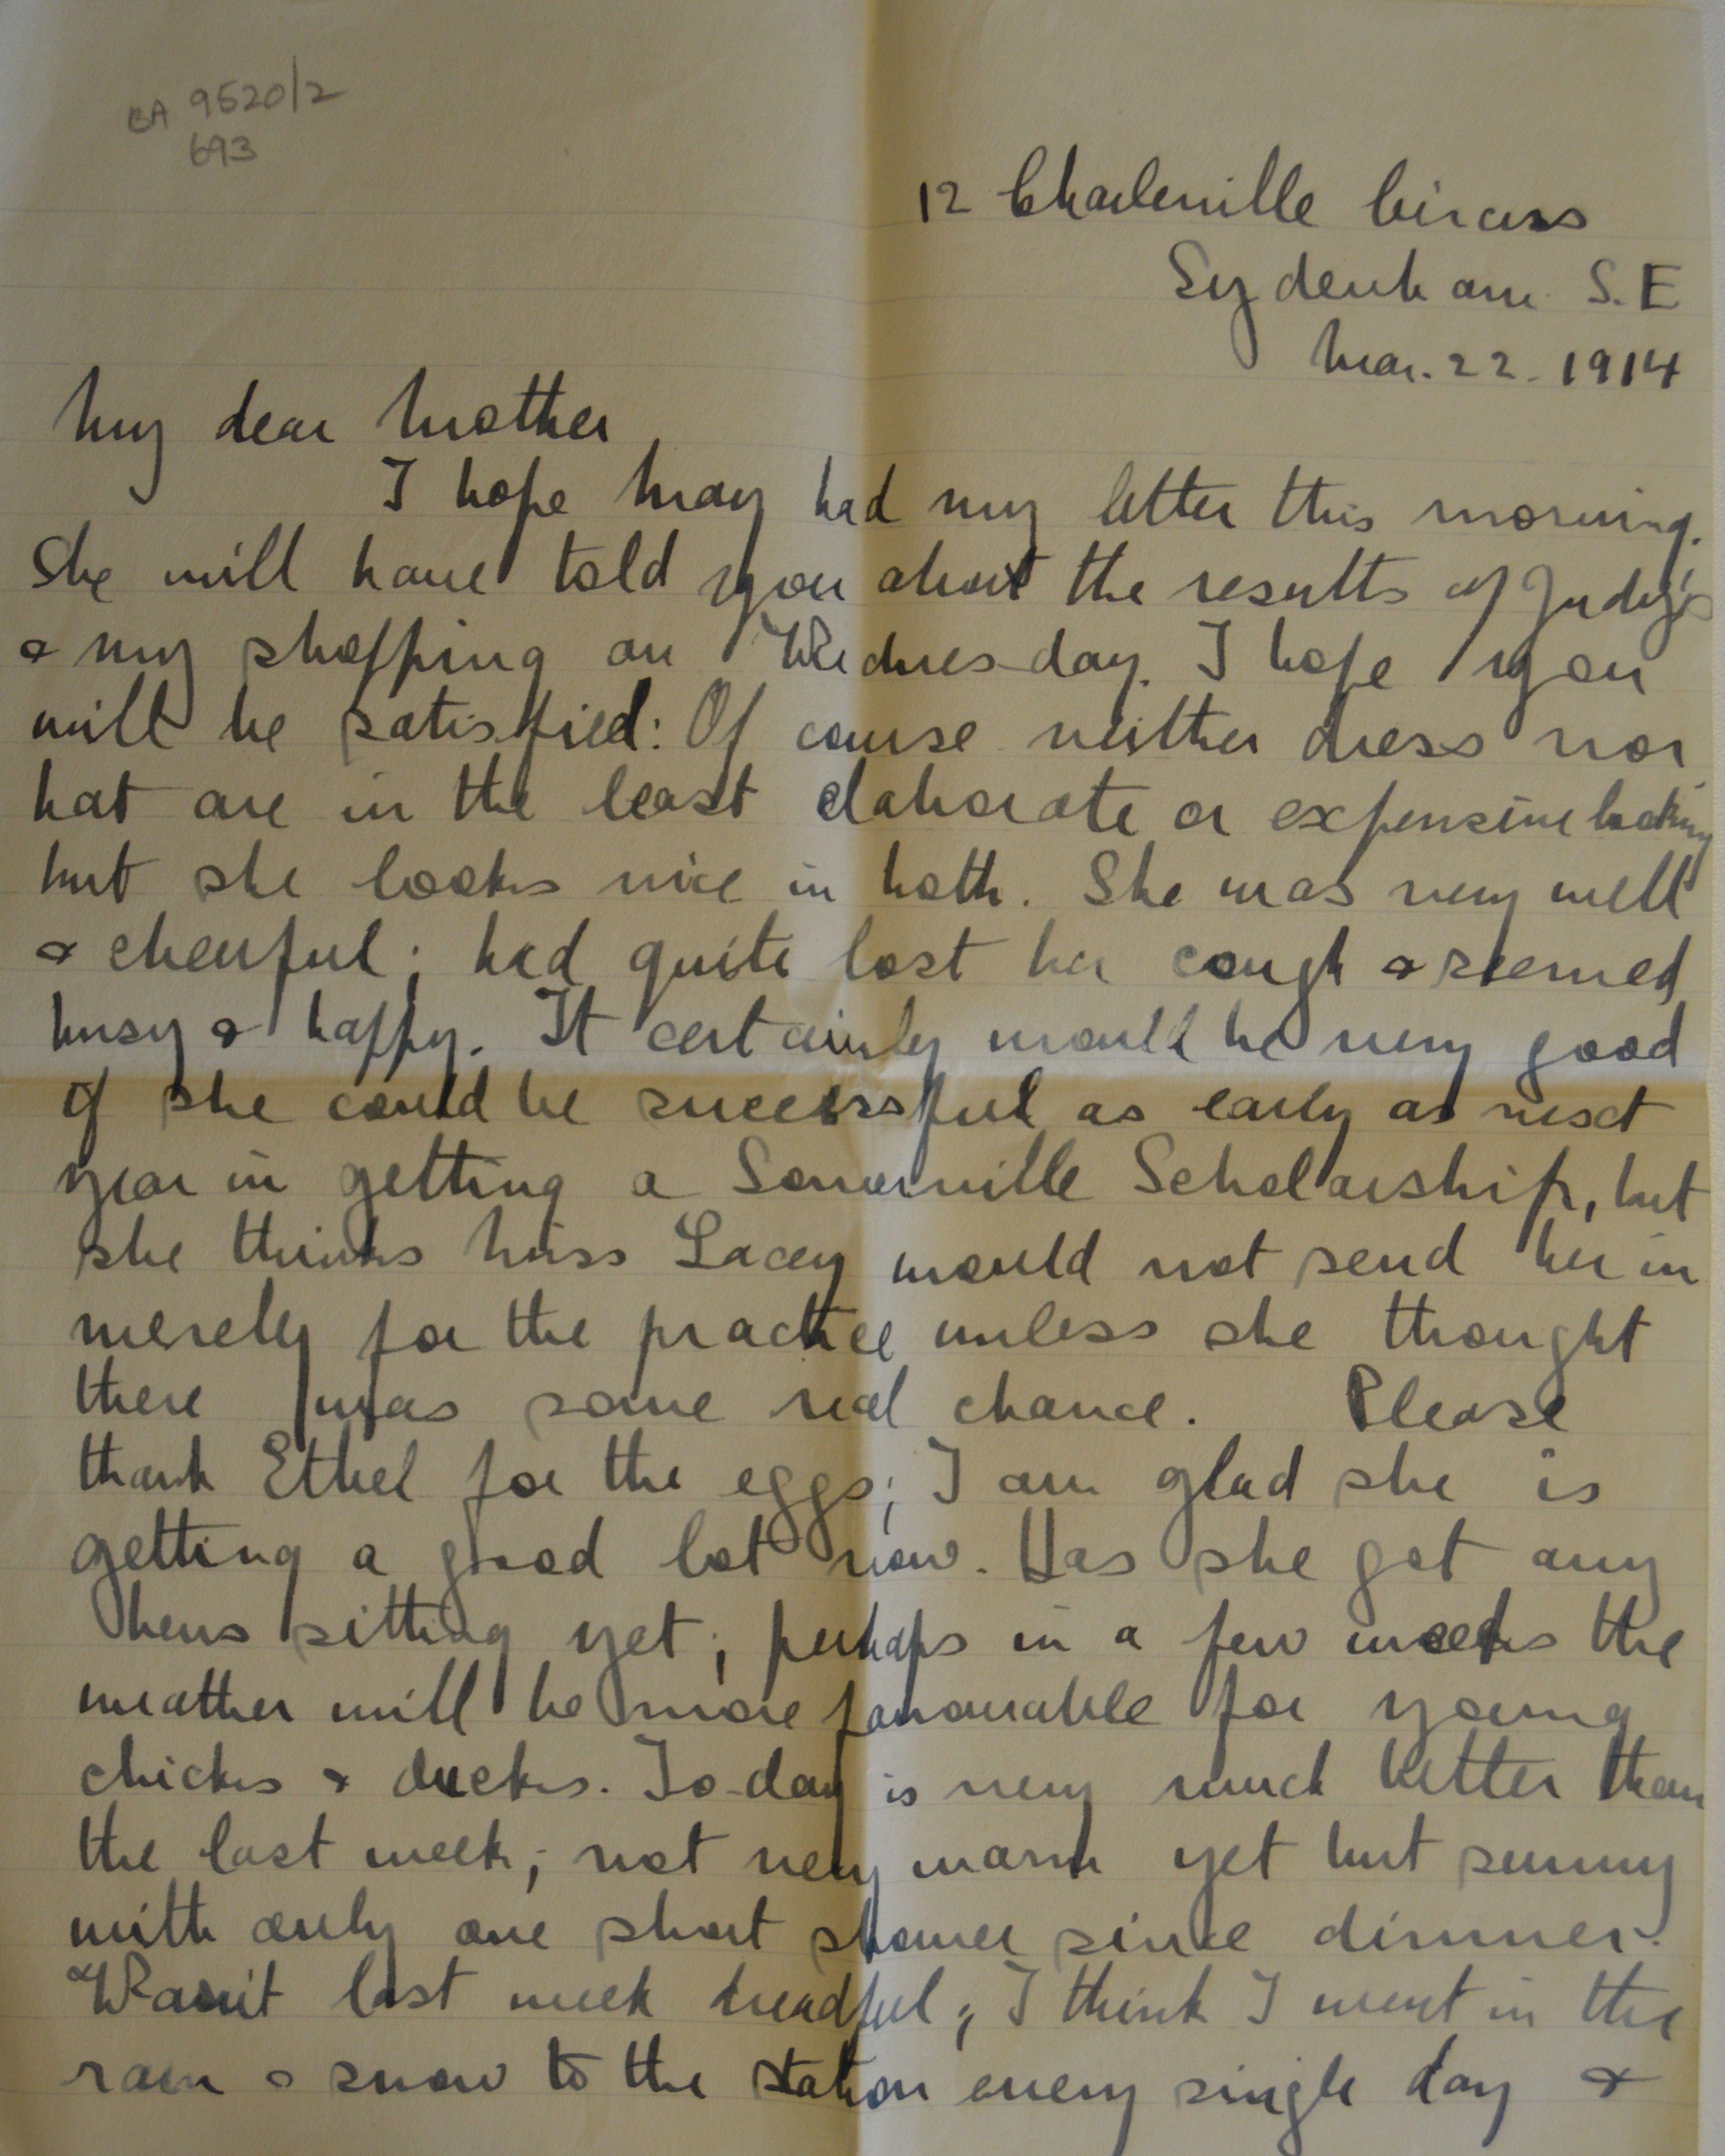 BA 9520/2
693
12 Charleville Circus
Sydenham S.E
Mar. 22. 1914
My dear Mother
I hope May had my letter this morning.
She will have told you about the results of Judy's
& my shopping on Wednesday. I hope you
will be satisfied: Of course neither dress nor
hat are in the least elaborate or expensive looking
but she looks nice in both. She was very well
& cheerful; had quite lost her cough & seemed
busy & happy. It certainly would be very good
if she could be successful as early as next
year in getting a Somerville Scholarship, but
she thinks Miss Lacey would not send her in
merely for the practice unless she thought
there was some real chance. Please
thank Ethel for the eggs; I am glad she is
getting a good lot now. Has she got any
hens sitting yet; perhaps in a few weeks the
weather will be more favourable for young
chicks & ducks. To-day is very much better than
the last week; not very warm yet but sunny
with only one short shower since dinner.
Wasn't last week dreadful; I think I went in the
rain & snow to the station every single day &